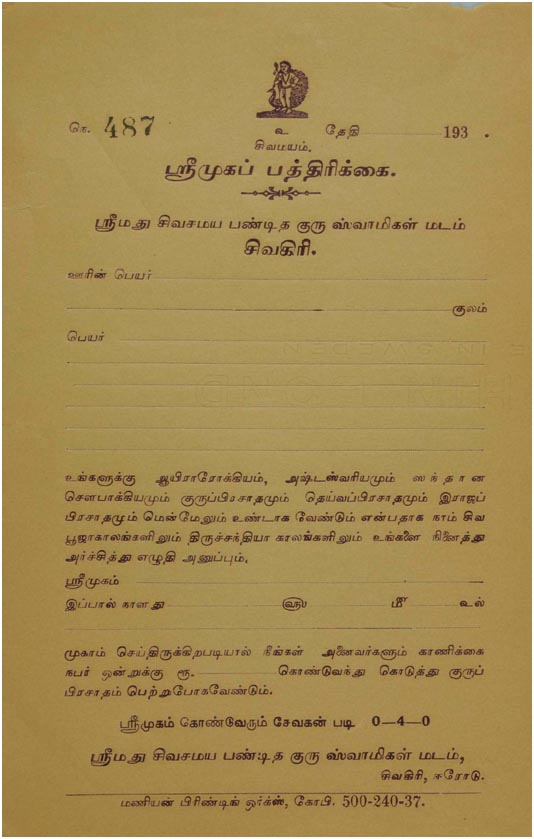 நெ. 487 உ தேதி 193 .
சிவமயம்.
ஸ்ரீமுகப் பத்திரிக்கை.
ஸ்ரீமது சிவசமய பண்டித குரு ஸ்வாமிகள் மடம்
சிவகிரி.
ஊரின் பெயர்
குலம்
பெயர்
உங்களுக்கு ஆயிராரோக்கியம், அஷ்டஸ்வரியமும் ஸந்தான
சௌபாக்கியமும் குருப்பிரசாதமும் தெய்வப்பிரசாதமும் இராஜப்
பிரசாதமும் மென்மேலும் உண்டாக வேண்டும் என்பதாக நாம் சிவ
பூஜாகாலங்களிலும் திருச்சந்தியா காலங்களிலும் உங்களை நினைத்து
அர்ச்சித்து எழுதி அனுப்பும்.
ஸ்ரீமுகம்
இப்பால் நாளது ௵ ௴ உல்
முகாம் செய்திருக்கிறபடியால் நீங்கள் அனைவர்களும் காணிக்கை
நபர் ஒன்றுக்கு ரூ. கொண்டுவந்து கொடுத்து குருப்
பிரசாதம் பெற்றுபோகவேண்டும்.
ஸ்ரீமுகம் கொண்டுவரும் சேவகன் படி 0—4—0
ஸ்ரீமது சிவசமய பண்டித குரு ஸ்வாமிகள் மடம்,
சிவகிரி, ஈரோடு.
மணியன் பிரிண்டிங் ஒர்க்ஸ், கோபி. 500-240-37.